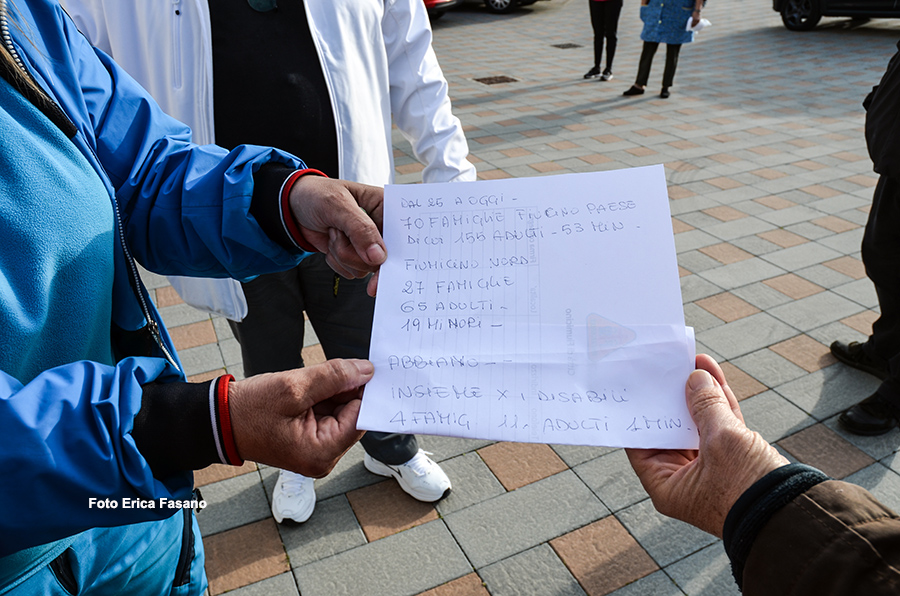 DAL 25 A OGGI -
70 FAMIGLIE FIUCINO PAESE
DI CUI 155 ADULTI - 53 MIN.
FIUMICINO NORD
27 FAMIGLIE
65 ADULTI -
19 MINORI -
ABBIAMO - -
INSIEME X I DISABILI
4 FAMIG 11 ADULTI 1 MIN.
Foto Erica Fasano